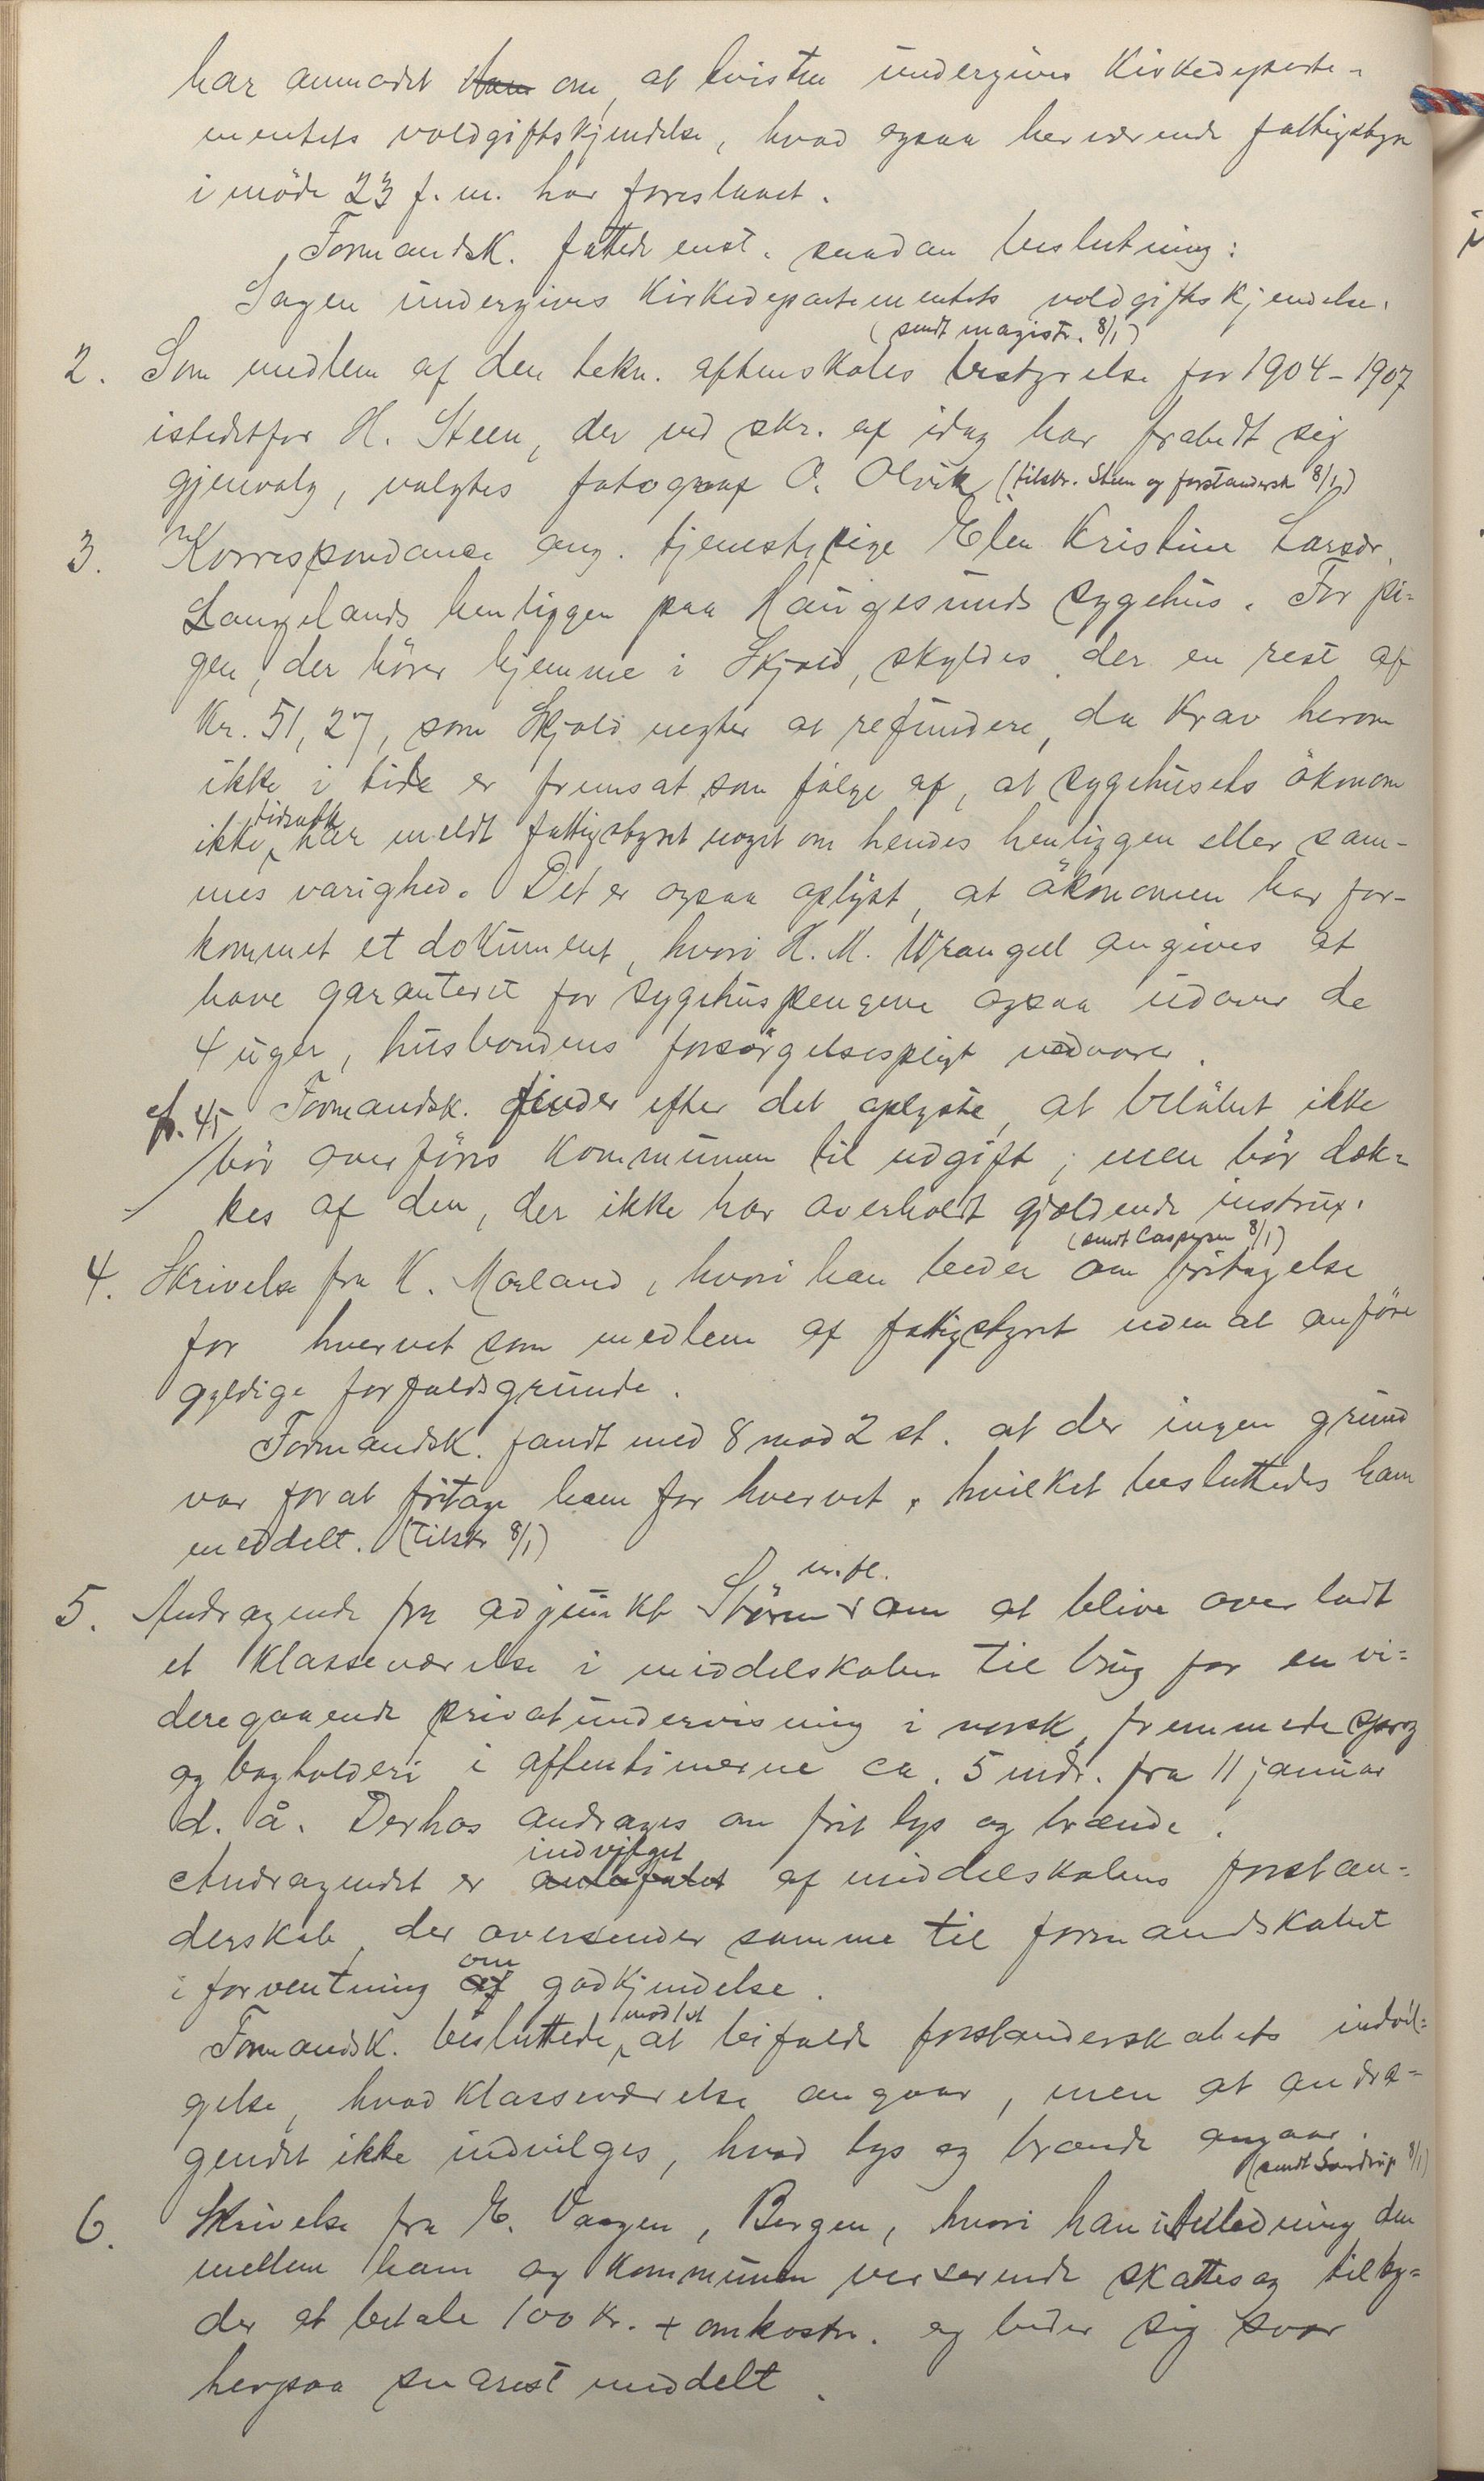 har anmodet ham om, at tvisten undergives Kirkedeparte-
mentets voldgiftskjendelse, hvad ogsaa herværende fattigstyre
i møde 23 f. m. har foreslaaet.
Formandsk. fattede enst. saadan beslutning:
Sagen undergives Kirkedepartementets voldgiftskjendelse.
(sendt magistr. 8/1)
2. Som medlem af den tekn. aftenskoles bestyrelse for 1904-1907
istedetfor H. Steen, der ved skr. af idag har frabedt sig
gjenvalg, valgtes fotograf O. Olvik (tilskr. Steen og forstandersk. 8/1)
3. Korrespondance ang. tjenestepige Elen Kristine Larsdr.
Langelands henliggen paa Haugesunds sygehus. For pi-
gen, der hører hjemme i Skjold, skyldes der en rest af
Kr. 51,27, som Skjold negter at refundere, da krav herom
ikke i tide er fremsat som følge af, at sygehusets økonom
tidsnok
ikke har meldt fattigstyret noget om hendes henliggen eller sam-
mes varighed. Det er ogsaa oplyst, at økonomen har for-
kommet et dokument, hvori H. M. Wrangell angives at
have garanteret for sygehuspengene ogsaa udover de
4 uger, husbondens forsørgelsespligt vedvarer.
cfr. 45 Formandsk. finder efter det oplyste, at beløbet ikke
bør overføres kommunen til udgift, men bør dæk-
kes af den, der ikke har overholdt gjældende instrux.
(sendt Caspersen 8/1)
4. Skrivelse fra K. Moeland, hvori han beder om fritagelse
for hvervet som medlem af fattigstyret uden at anføre
gyldige forfaldsgrunde.
Formandsk. fandt med 8 mod 2 st. at der ingen grund
var for at fritage ham for hvervet, hvilket besluttedes ham
meddelt. (tilskr. 8/1)
m. fl.
5. Andragende fra adjunkt Støren om at blive overladt
et klasseværelse i middelskolen til brug for en vi-
deregaaende privatundervisning i norsk, fremmede sprog
og bogholderi i aftentimerne ca. 5 mdr. fra 11 januar
d. å. Derhos andrages om frit lys og brænde.
indvilget
Andragendet er anbefalet af middelskolens forstan-
derskab, der oversender samme til formandskabet
om
i forventning af godkjendelse.
mod 1 st
Formandsk. besluttede at bifalde forstanderskabets indvil-
gelse, hvad klasseværelse angaar, men at andra-
gendet ikke indvilges, hvad lys og brænde angaar.
(sendt Sandrup 8/1)
6. Skrivelse fra E. Vaagen, Bergen, hvori han i anledning den
mellem ham og kommunen verserende skattesag tilby-
der at betale 100 kr. + omkostn. og beder sig svar
herpaa snarest meddelt.